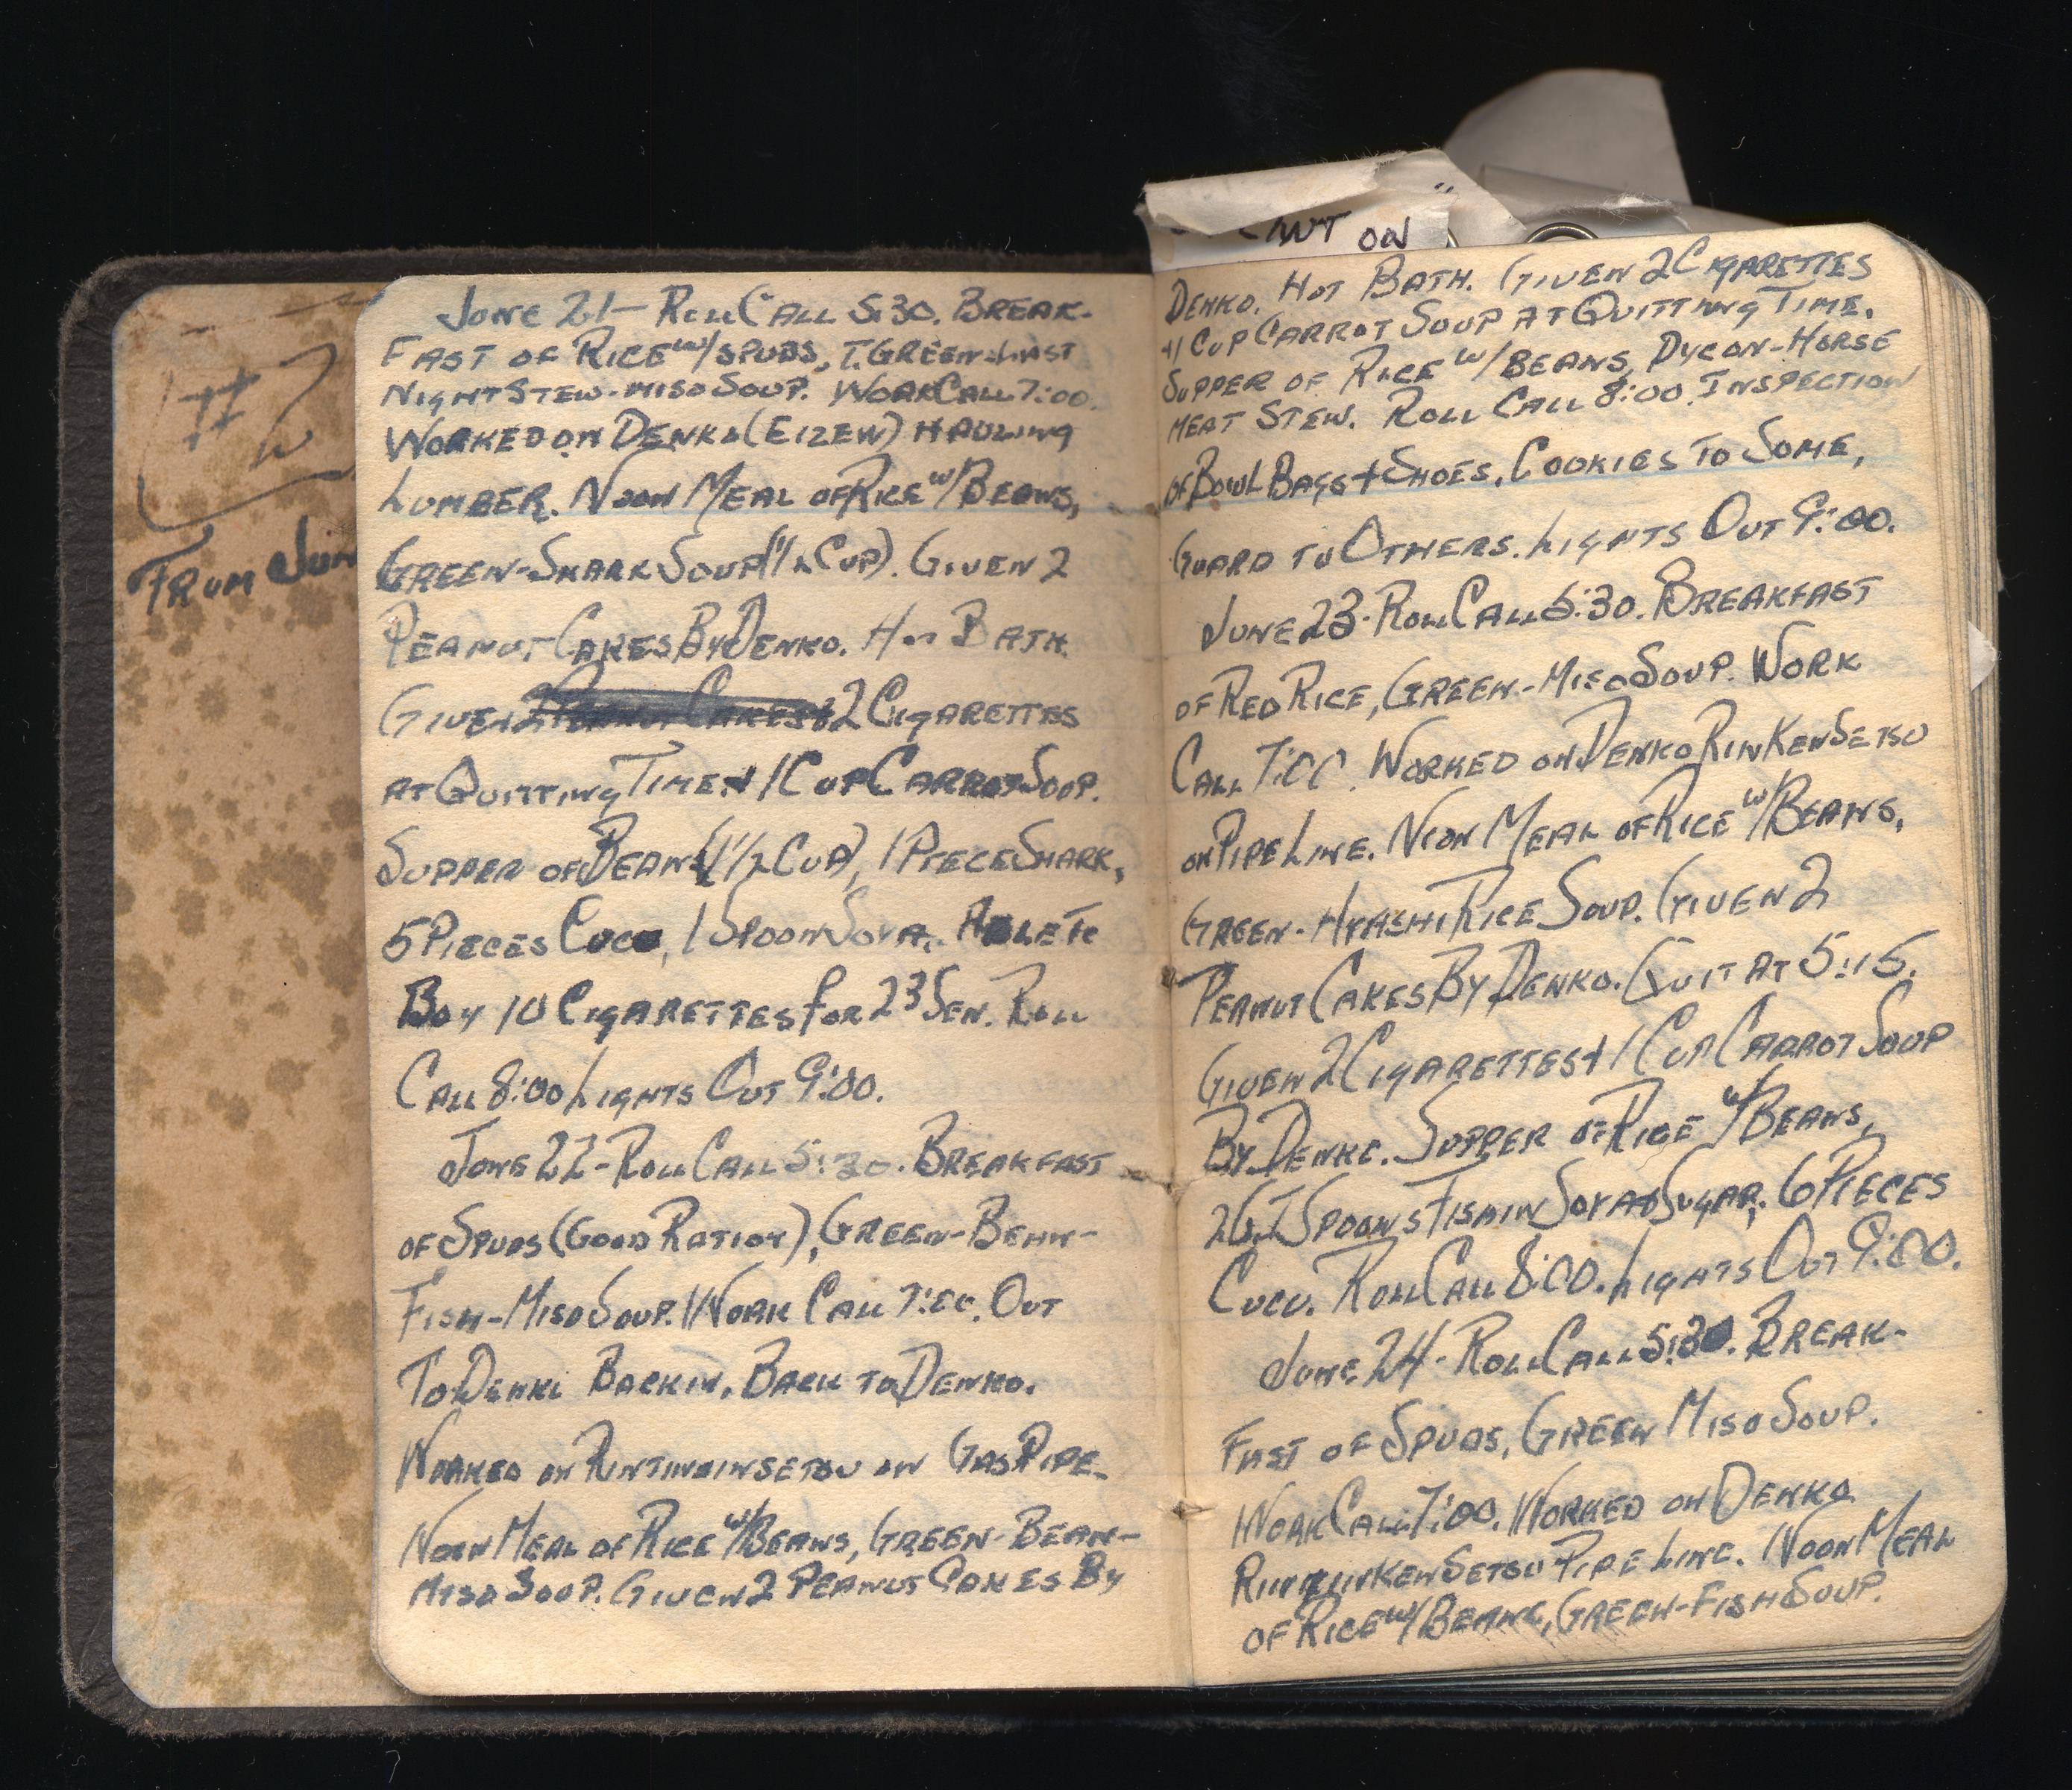 #2
FROM JUN
CAN'T ON
JUNE 21— ROLL CALL 5:30. BREAK-
FAST OF RICE W/SPUDS, T. GREEN-LAST
NIGHT STEW-MISO SOUP. WORK CALL 7:00.
WORKED ON DENKO (EIZEW) HAULING
LUMBER. NOON MEAL OF RICE W/BEANS,
GREEN-SHARK SOUP (1/2 CUP). GIVEN 2
PEANUT CAKES BY DENKO. HOT BATH.
GIVEN 2 PEANUT CAKES & 2 CIGARETTES
AT QUITTING TIME + 1 CUP CARROT SOUP.
SUPPER OF BEANS (1 1/2 CUP), 1 PIECE SHARK,
5 PIECES CUCU, 1 SPOON SOYA. ABLE TO
BUY 10 CIGARETTES FOR 23 SEN. ROLL
CALL 8:00 LIGHTS OUT 9:00.
JUNE 22-ROLL CALL 5:30. BREAKFAST
OF SPUDS (GOOD RATION), GREEN-BEAN-
FISH-MISO SOUP. WORK CALL 7:00. OUT
TO DENKI BACK IN, BACK TO DENKO.
WORKED ON ON GAS PIPE.
NOON MEAL OF RICE W/BEANS, GREEN-BEAN-
MISO SOUP. GIVEN 2 PEANUT CAKES BY
DENKO. HOT BATH. GIVEN 2 CIGARETTES
+1 CUP CARROT SOUP AT QUITTING TIME.
SUPPER OF RICE W/BEANS, DYCON-HORSE
MEAT STEW. ROLL CALL 8:00. INSPECTION
OF BOWL BAGS + SHOES, COOKIES TO SOME,
GUARD TO OTHERS. LIGHTS OUT 9:00.
JUNE 23-ROLL CALL 5:30. BREAKFAST
OF RED RICE, GREEN-MISO SOUP. WORK
CALL 7:00. WORKED ON DENKO RINKENSETSU
ON PIPE LINE. NOON MEAL OF RICE W/BEANS,
GREEN-HYASHI RICE SOUP. GIVEN 2
PEANUT CAKES BY DENKO. QUIT AT 5:15.
GIVEN 2 CIGARETTES + 1 CUP CARROT SOUP
BY DENKO. SUPPER OF RICE W/BEANS,
2 SPOONS FISH IN SOYA + SUGAR, 6 PIECES
CUCU. ROLL CALL 8:00. LIGHTS OUT 9:00.
JUNE 24-ROLL CALL 5:30. BREAK-
FAST OF SPUDS, GREEN MISO SOUP.
WORK CALL 7:00. WORKED ON DENKO
PIPE LINE. NOON MEAL
OF RICE W/BEANS, GREEN-FISH SOUP.